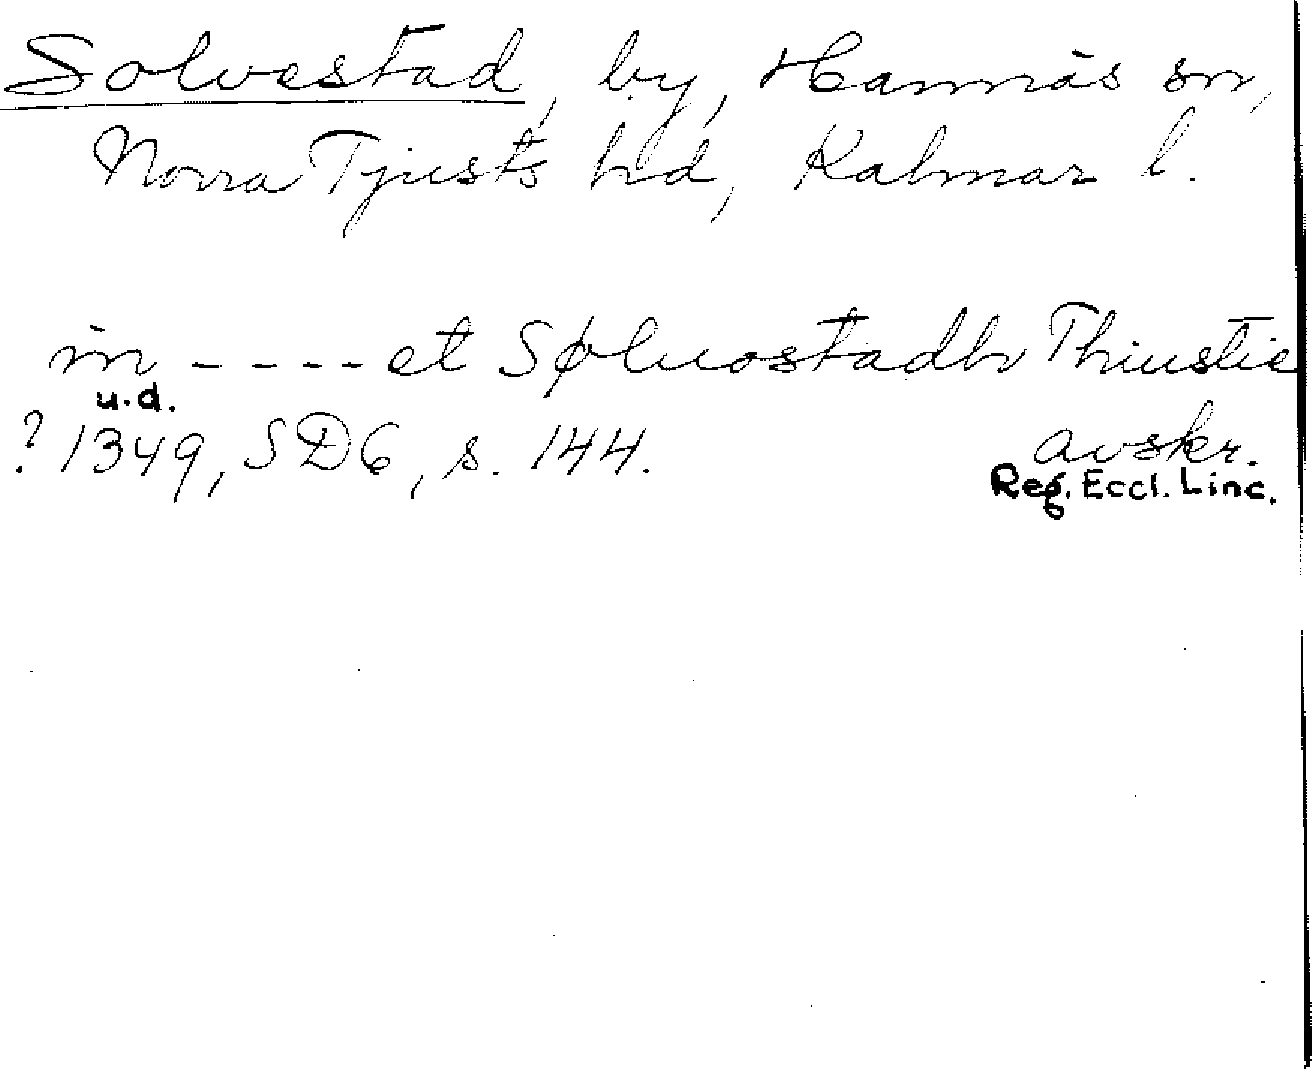 Solvestad, by, Hannäs sn,
Norra Tjusts hd, Kalmar l.
in ---- et Søluastadhr Thiustie
u.d.
? 1349, SD6, s. 144. avskr.
Reg. Eccl. Linc.